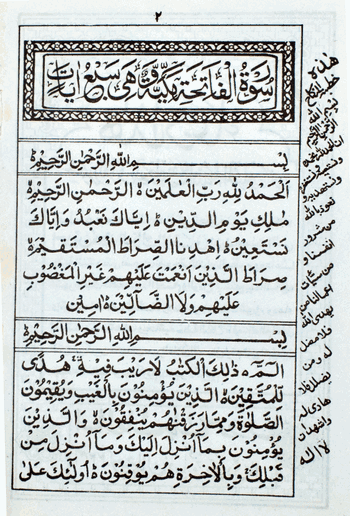 ٢
سورة الفاتحة مكية وهى سبع ايات
بسم الله الرحمن الرحيم
الحمد لله رب العلمين ه الرحمن الرحيم ه
ملك يوم الدين ه اياك نعبد واياك
نستعين ه اهدنا الصراط المستقيم ه
صراط الذين انعمت عليهم غير المغضوب
عليهم ولا الضالين ه امين
بسم الله الرحمن الرحيم
الم ه ذلك الكتب لا ريب فيه ه هدى
للمتقين ه الذين يؤمنون بالغيب ويقيمون
الصلوة ومما رزقنهم ينفقون ه والذين
يؤمنون بما انزل اليك وما انزل من
قبلك ه وبالاخرة هم يوقنون ه اولئك على
هذه
خطبة النكاح
بسم الله
الرحمن الرحيم
ان الحمد لله نحمده
ونستعينه
نعوذ بالله
من شرور
انفسنا و
من سيأت
اعمالنا من
يهدى الله
فلا مضل
له ومن
يضلل فلا
هادى له
واشهد ان
لا اله